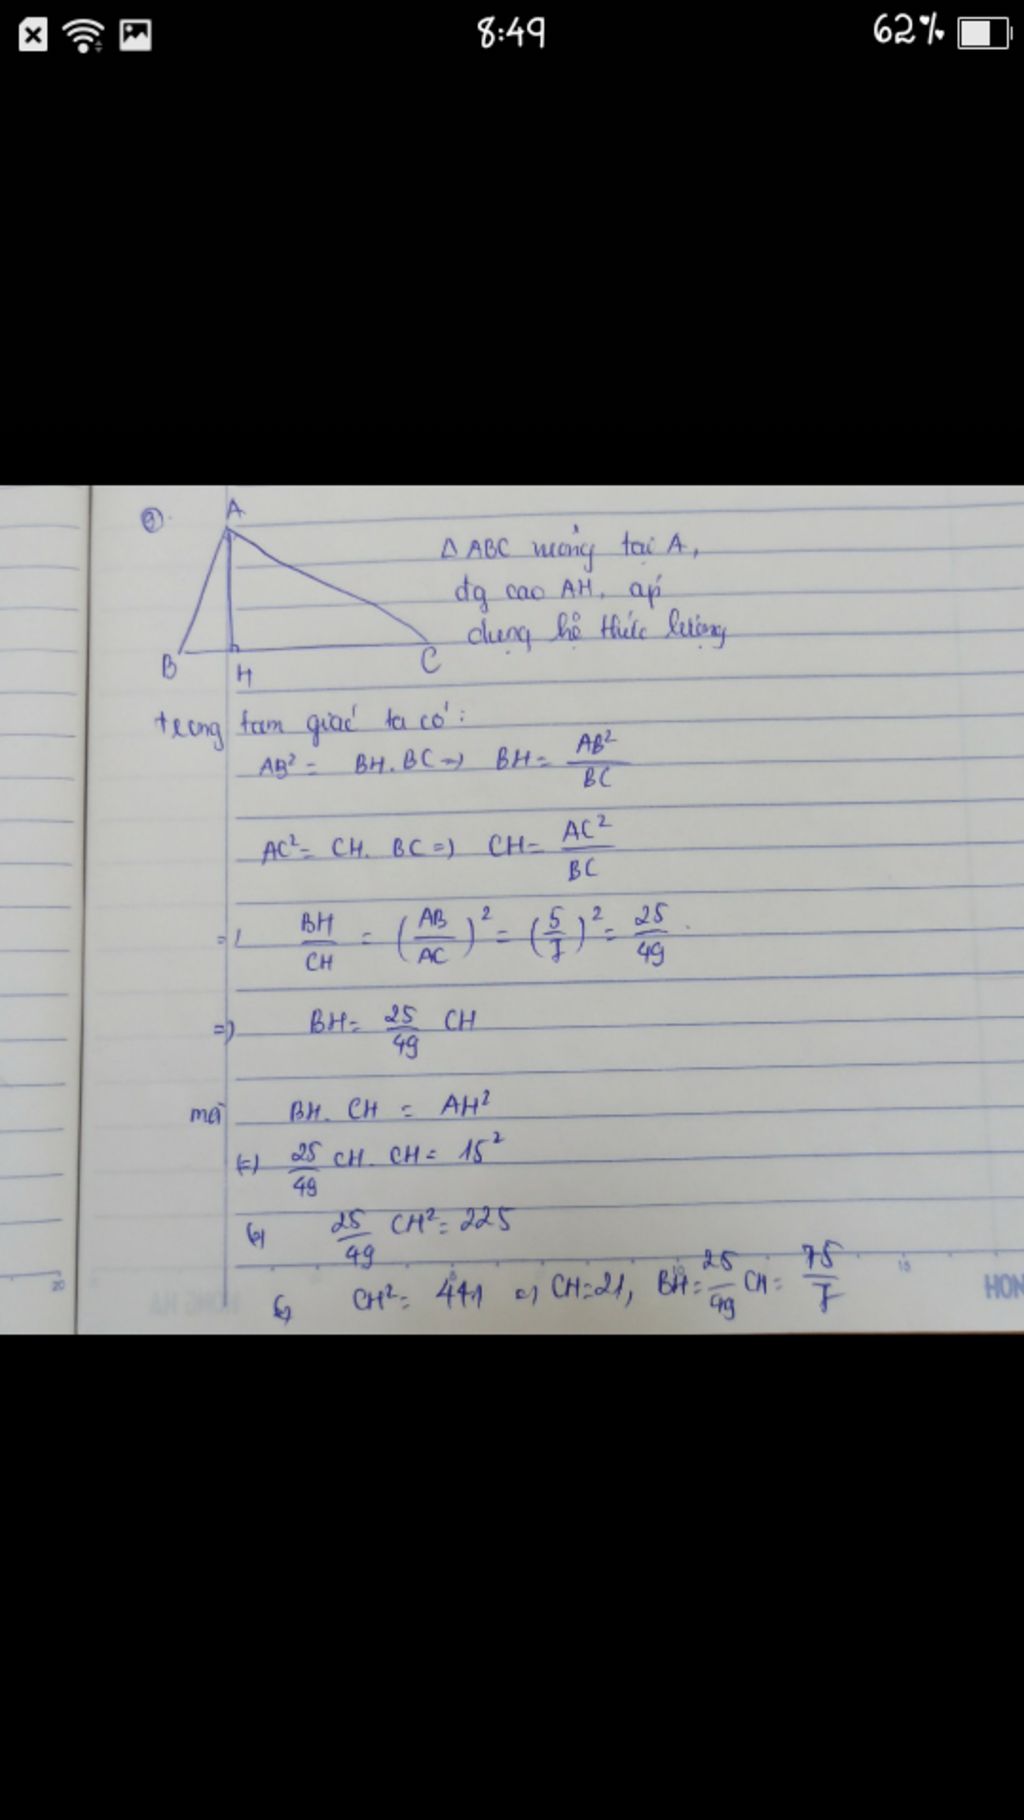 8:49
62%
A
△ABC vuông tại A,
đg cao AH, áp
dụng hệ thức lượng
B
H
C
trong tam giác ta có:
AB² = BH.BC => BH = AB²/BC
AC² = CH. BC => CH = AC²/BC
=> BH/CH = (AB/AC)² = (5/7)² = 25/49.
=> BH = 25/49 CH
mà BH. CH = AH²
(=) 25/49 CH. CH = 15²
25/49 CH² = 225
CH² = 441 => CH = 21, BH = 25/49 CH = 75/7
20
10
15
HON